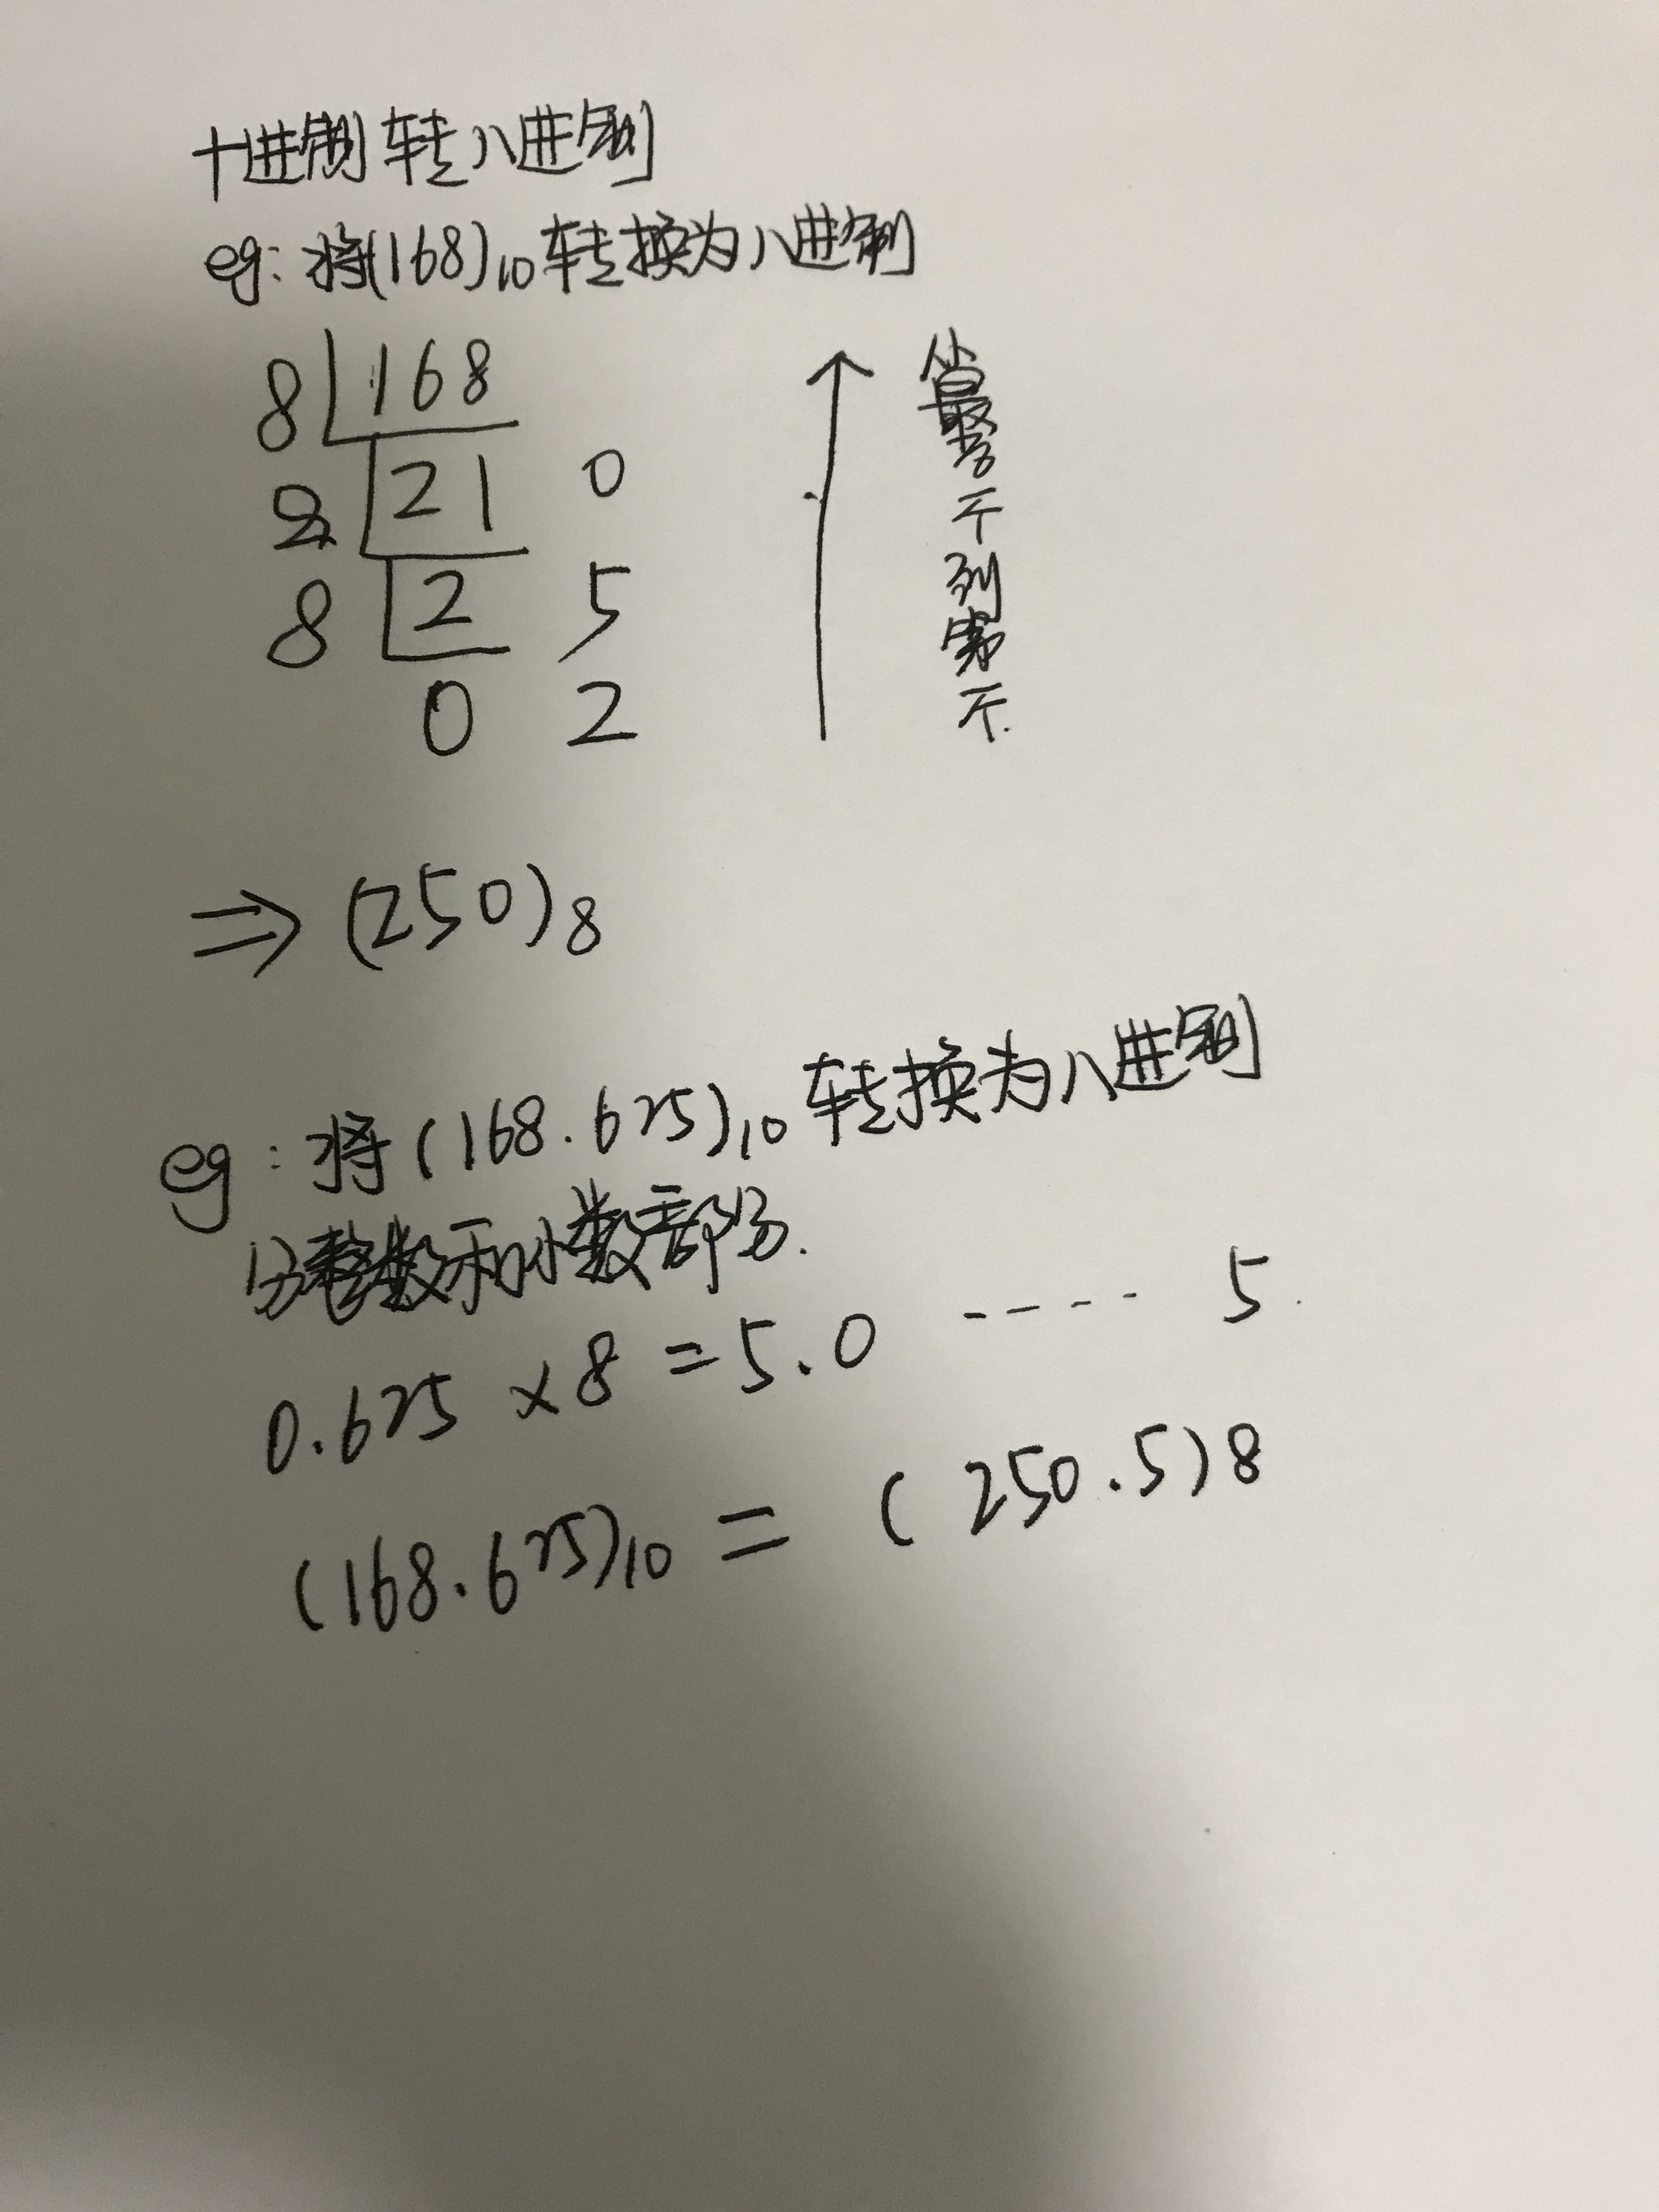 十进制转八进制
eg: 将(168)10转换为八进制
8 168
8 21 0
8 2 5
0 2
从最后一个到第一个.
⇒ (250)8
eg: 将(168.625)10转换为八进制
分整数和小数部分.
0.625 × 8 = 5.0 ---- 5.
(168.625)10 = (250.5)8